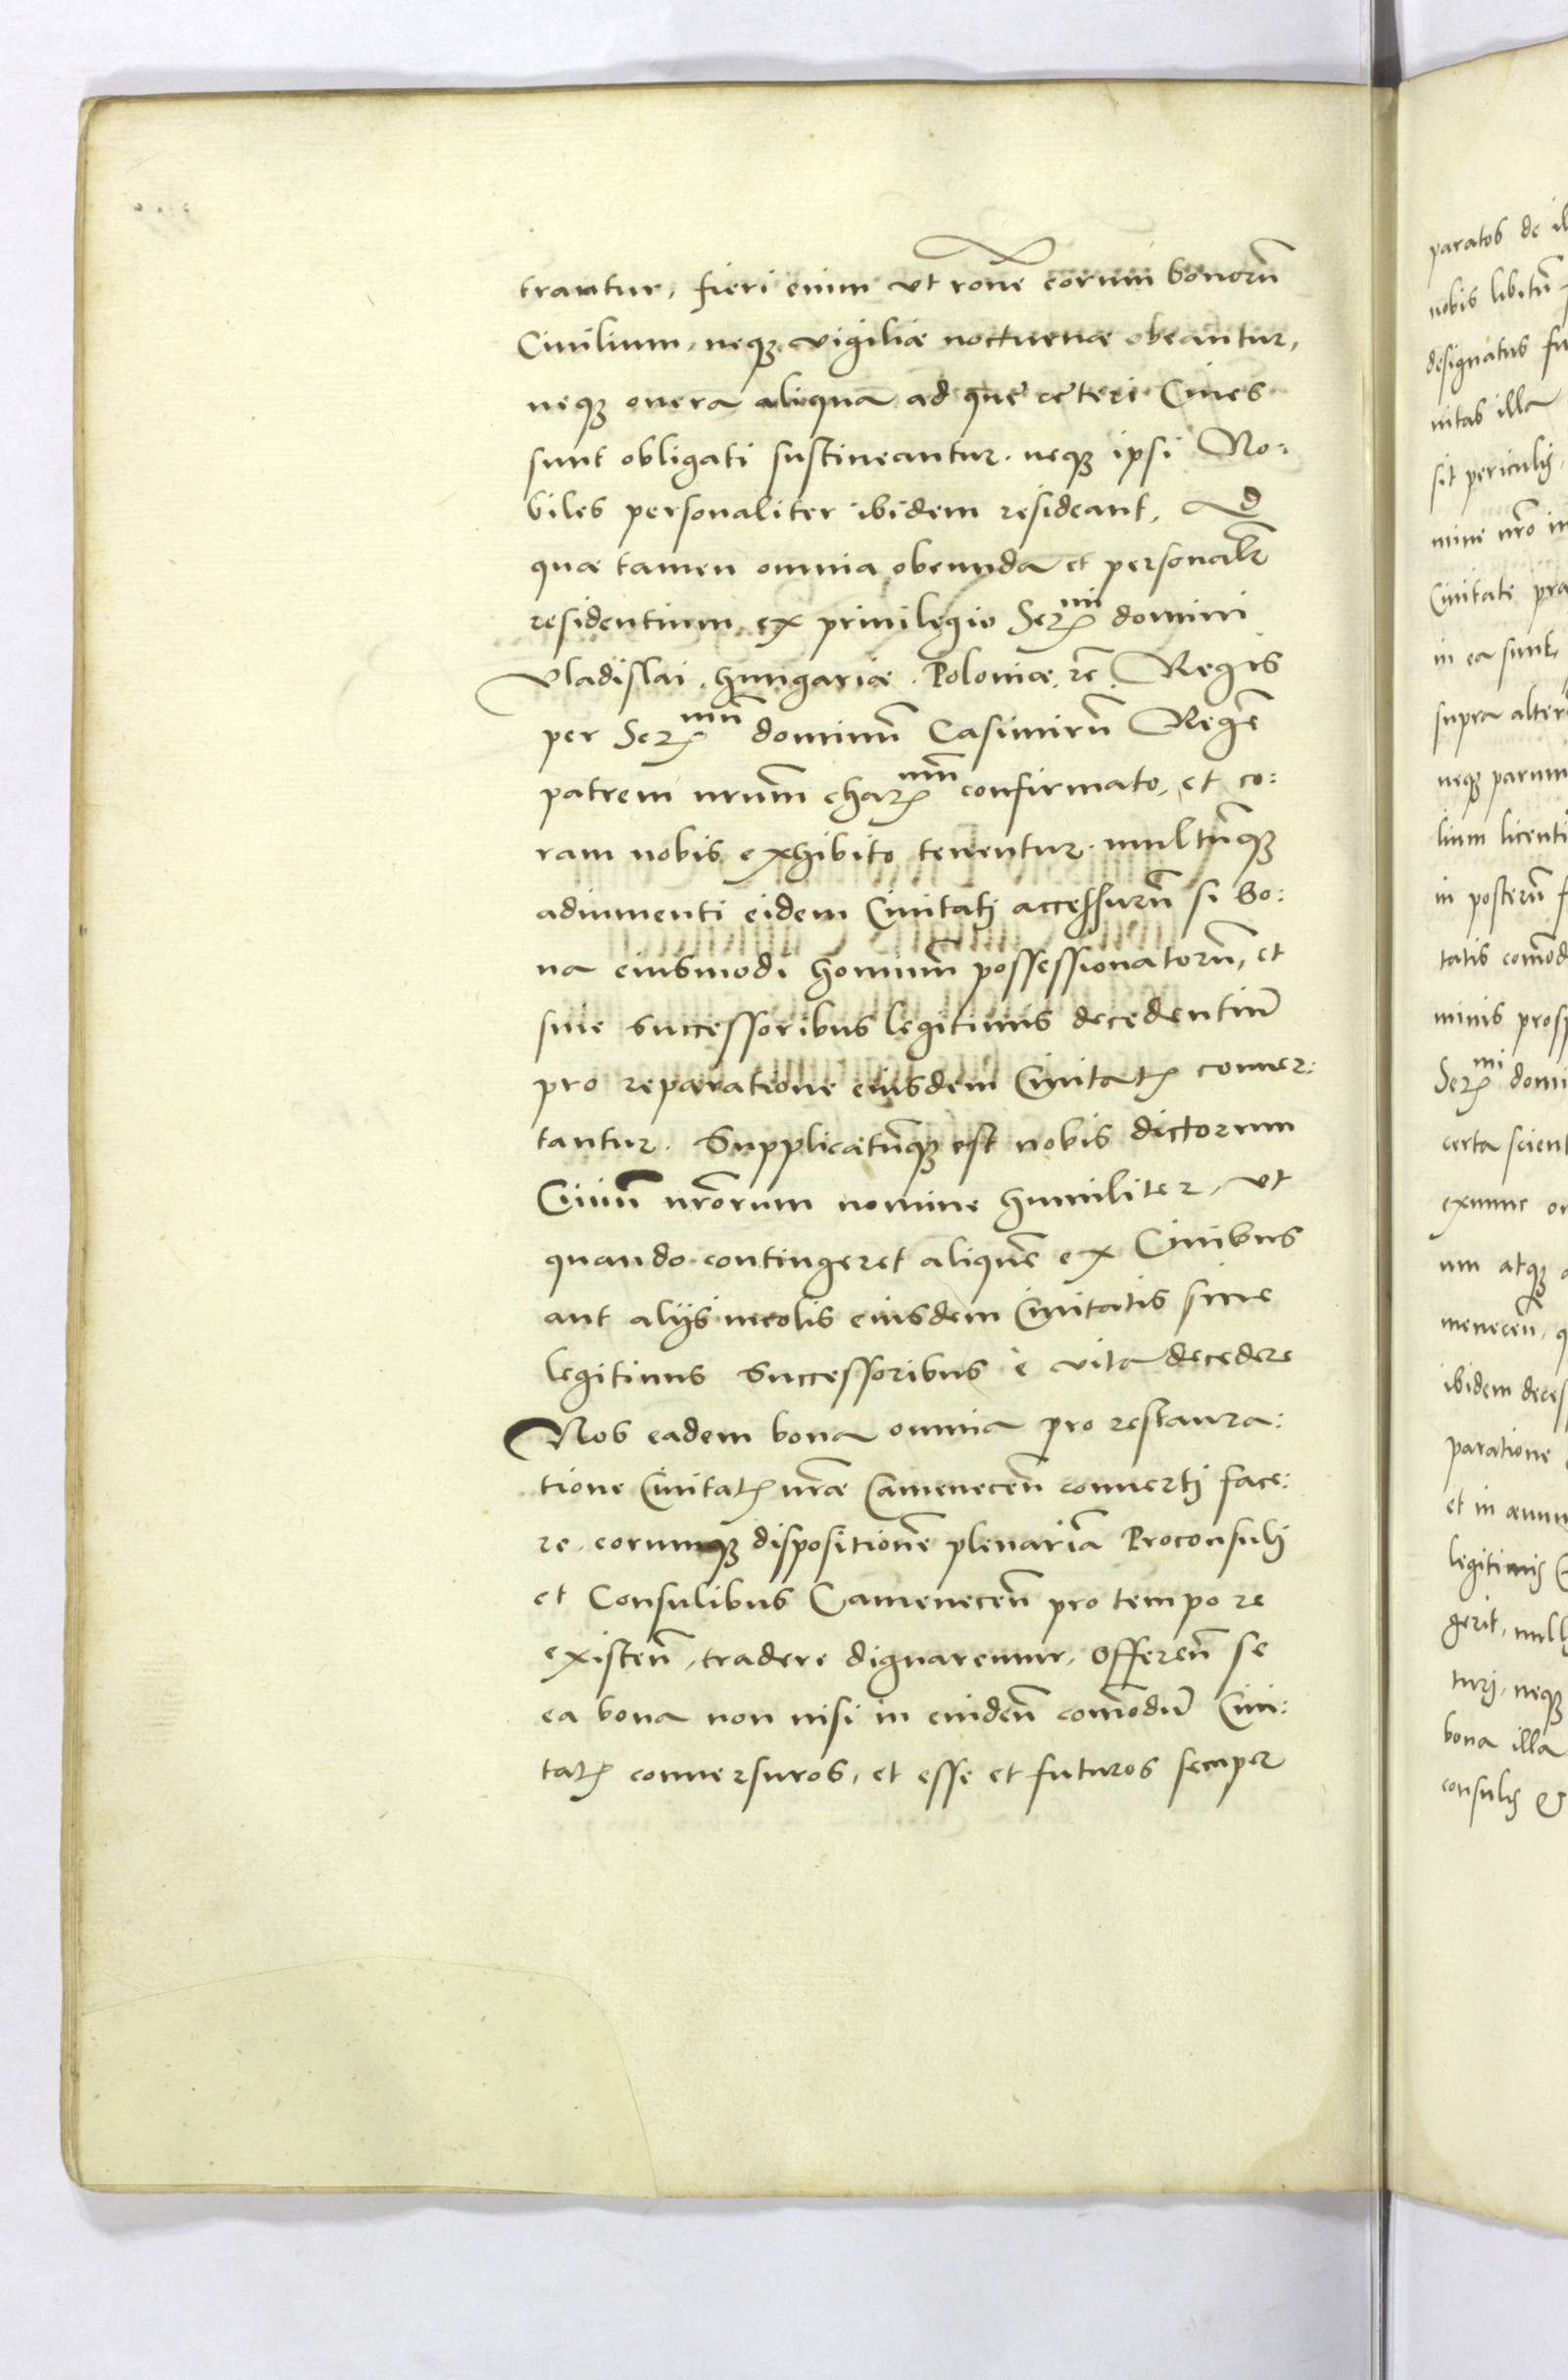 trantur, fieri enim vt rone͂ eorum bonoru͂
Ciuilium, neqꝫ vigiliæ nocturnæ obeantur,
neqꝫ onera aliqua ad que ceteri Ciues
sunt obligati sustineantur. neqꝫ ipsi No:
biles personaliter ibidem resideant, Ad
quæ tamen omnia obeunda et personale͂
residentium, ex priuilegio Serᵐⁱ domini
Vladislai, Hungariæ. Poloniæ, rc̄ Regis
per Serᵐᵘ̄ dominu͂ Casimiru͂ Rege͂
patrem nrum̄ charᵐᵘ̄ confirmato, et co:
ram nobis exhibito tenentur. multu͂qꝫ
adiumenti eidem Ciuitatj accessuru͂ si bo:
na eiusmodi hominu͂ possessionatoru͂, et
sine successoribus legitimis decedentiu͂
pro reparatione eiusdem Ciuitatꝭ conuer:
tantur. Supplicatu͂qꝫ est nobis dictorum
Ciuiu͂ nro͂rum nomine humiliter, vt
quando contingeret alique͂ ex Ciuibus
aut alijs incolis eiusdem Ciuitatis sine
legitimis Successoribus è vita decedere
Nos eadem bona omnia pro restaura:
tione Ciuitatꝭ nr͂æ Camenecen͂ conuertj face:
re, eorumqꝫ dispositione͂ plenaria͂ Proconsulj
et Consulibus Camenecen͂ pro tempore
existen͂, tradere dignaremur, Offeren͂ se
ea bona non nisi in euiden͂ com͂odu͂ Ciui:
tatꝭ conuersuros, et esse et futuros semper
paratos de
nobis libitu͂
designatus
nitas illa
sit periculis,
mine nr͂o
Ciuitate
in ea sunt,
supra
neqꝫ parum
lium
in posteru͂
tatis
minis
Serᵐⁱ
certa
exnunc
um atqꝫ
menecen͂,
ibidem
paratione
et in
legitimis
gerit,
turj, neqꝫ
bona illa
consulis